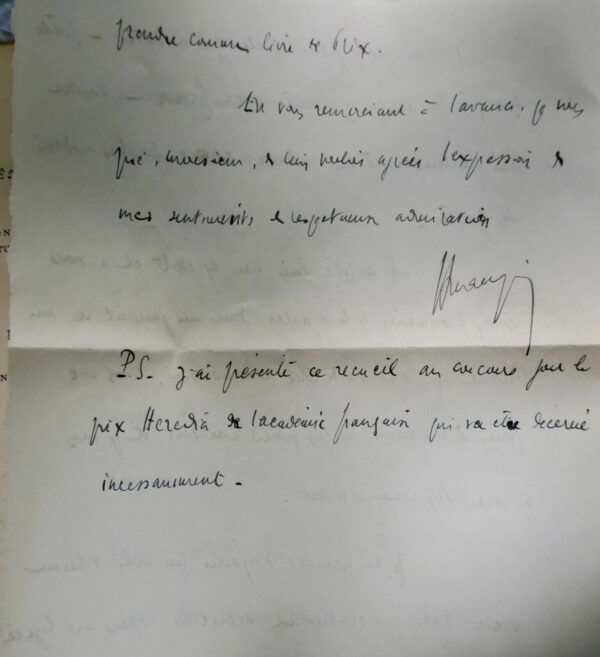 prendre comme livre de Prix.
En vous remerciant à l'avance, je vous
prie, monsieur, de bien vouloir agréer l'expression de
mes sentiments de respectueuse admiration
P.S. j'ai présenté ce recueil au concours pour le
prix Heredia de l'académie française qui va être décerné
incessamment.